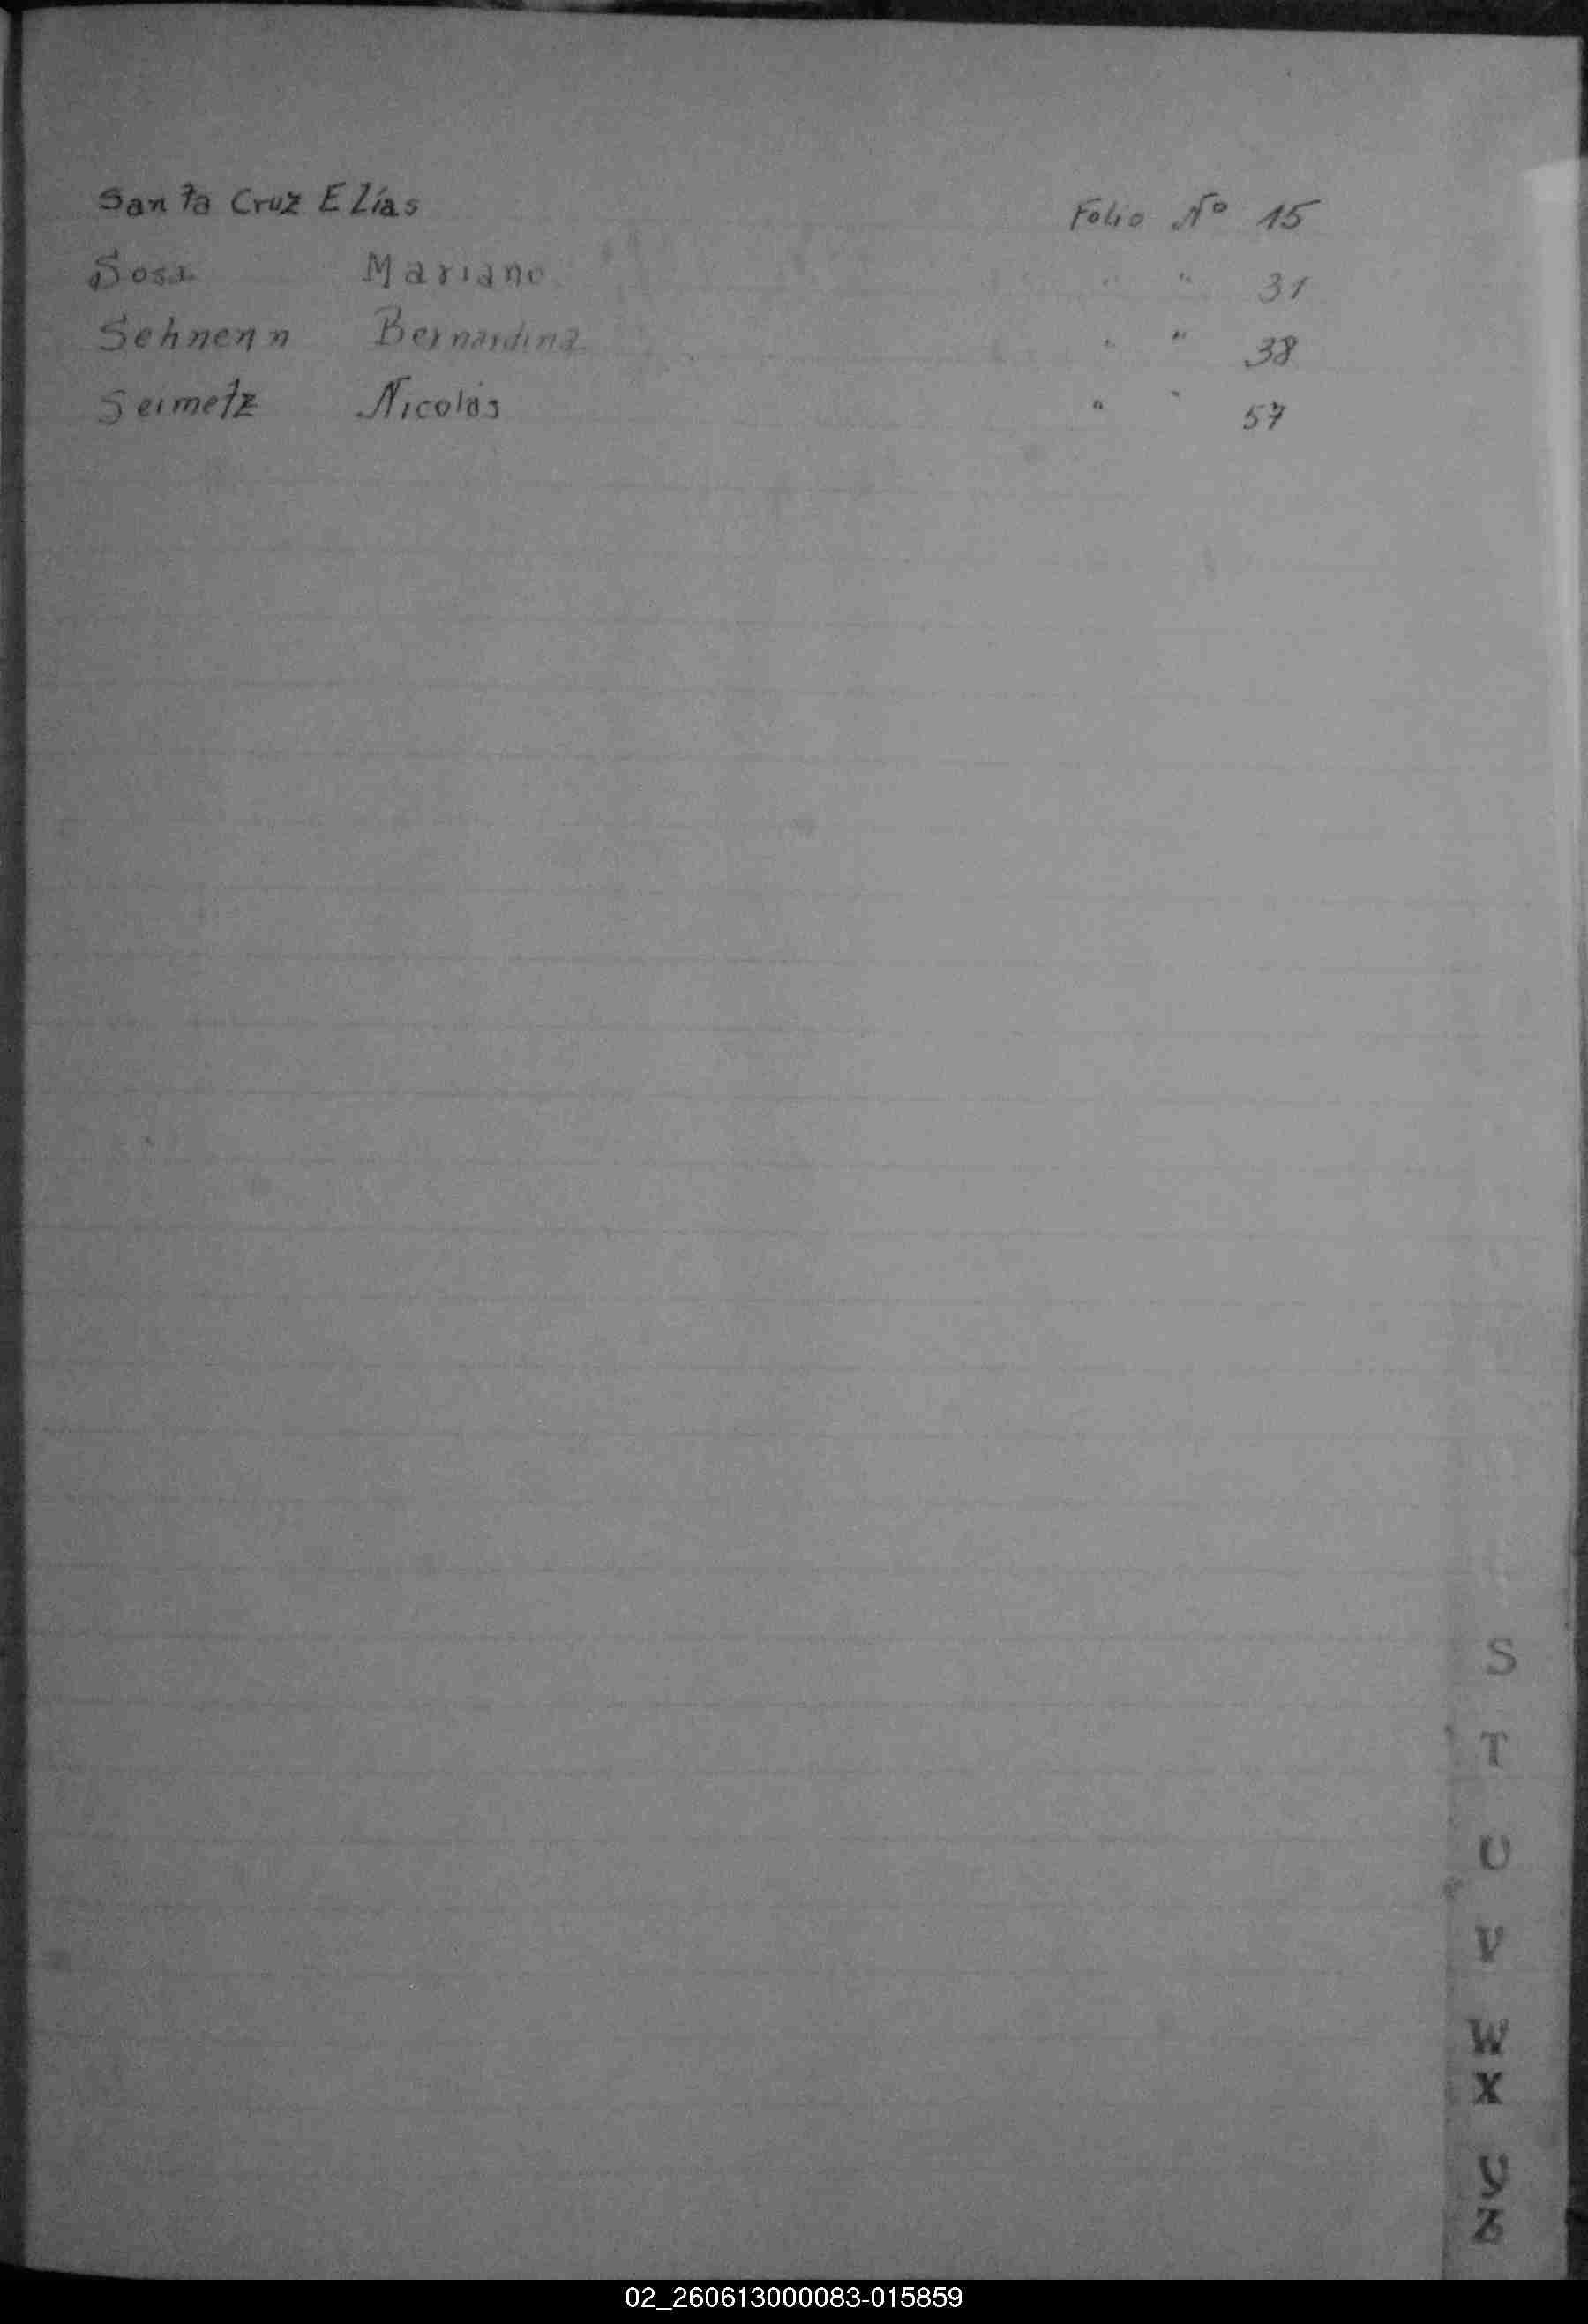 Santa Cruz Elías Folio Nº 15
Sosa Mariano " " 31
Sehnenn Bernardina " " 38
Seimetz Nicolás " " 57
S
T
U
V
W
X
Y
Z
02_260613000083-015859